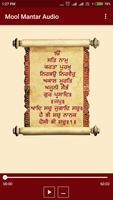 1:27 PM
Mool Mantar Audio
ੴ
ਸਤਿ ਨਾਮੁ
ਕਰਤਾ ਪੁਰਖੁ
ਨਿਰਭਉ ਨਿਰਵੈਰੁ
ਅਕਾਲ ਮੂਰਤਿ
ਅਜੂਨੀ ਸੈਭੰ
ਗੁਰ ਪ੍ਰਸਾਦਿ
॥ਜਪੁ॥
ਆਦਿ ਸਚੁ ਜੁਗਾਦਿ ਸਚੁ
ਹੈ ਭੀ ਸਚੁ
ਨਾਨਕ ਹੋਸੀ ਭੀ ਸਚੁ॥